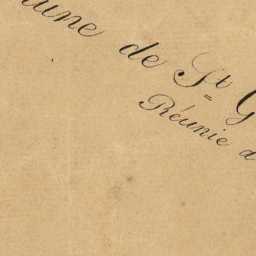 une de St G
Réunie